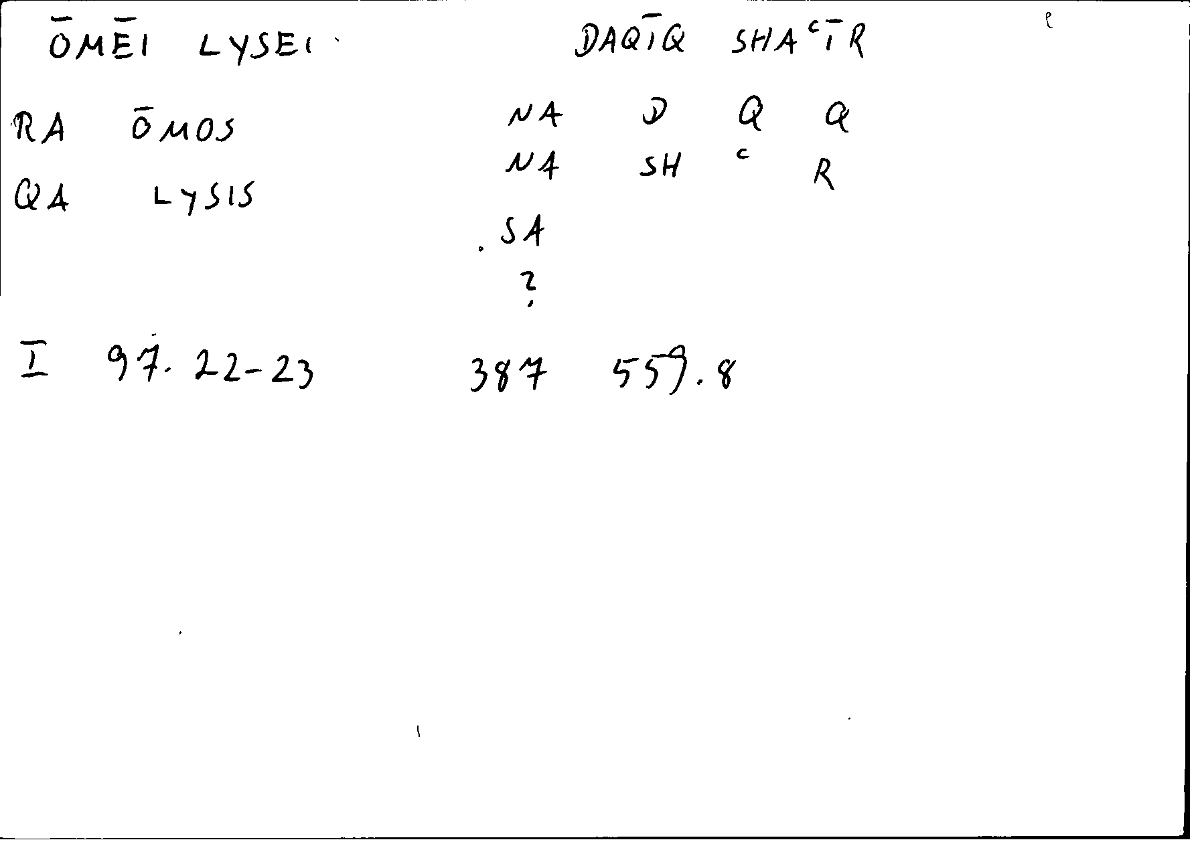 ŌMĒI LYSEI DAQĪQ SHAᶜĪR
RA ŌMOS NA D Q Q
QA LYSIS NA SH ᶜ R
SA
?
I 97. 22-23 387 559.8